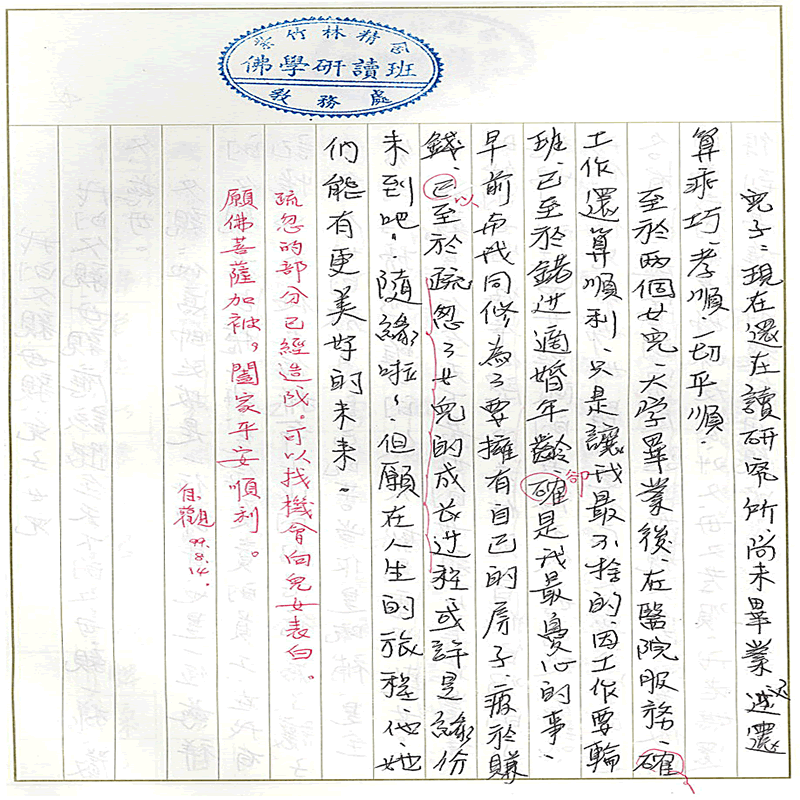 紫竹林精舍
佛學研讀班
教務處
兒子、現在還在讀研究所、尚未畢業、還
算乖巧、孝順、一切平順.
至於两個女兒、大学畢業後、在醫院服務、確
工作還算順利、只是讓我最不捨的、因工作要輪
班、已至於錯进適婚年齡、確是我最憂心的事、
卻
早前而我同修為了要擁有自己的房子、疲於賺
錢、已至於疏忽了女兒的成长进程或許是緣份
以
未到吧.隨緣啦~但願在人生的旅程、他、她
們能有更美好的未來。
疏忽的部分已經造成。可以找機會向兒女表白。
願佛菩薩加被,闔家平安順利。
自觀
99.8.14.